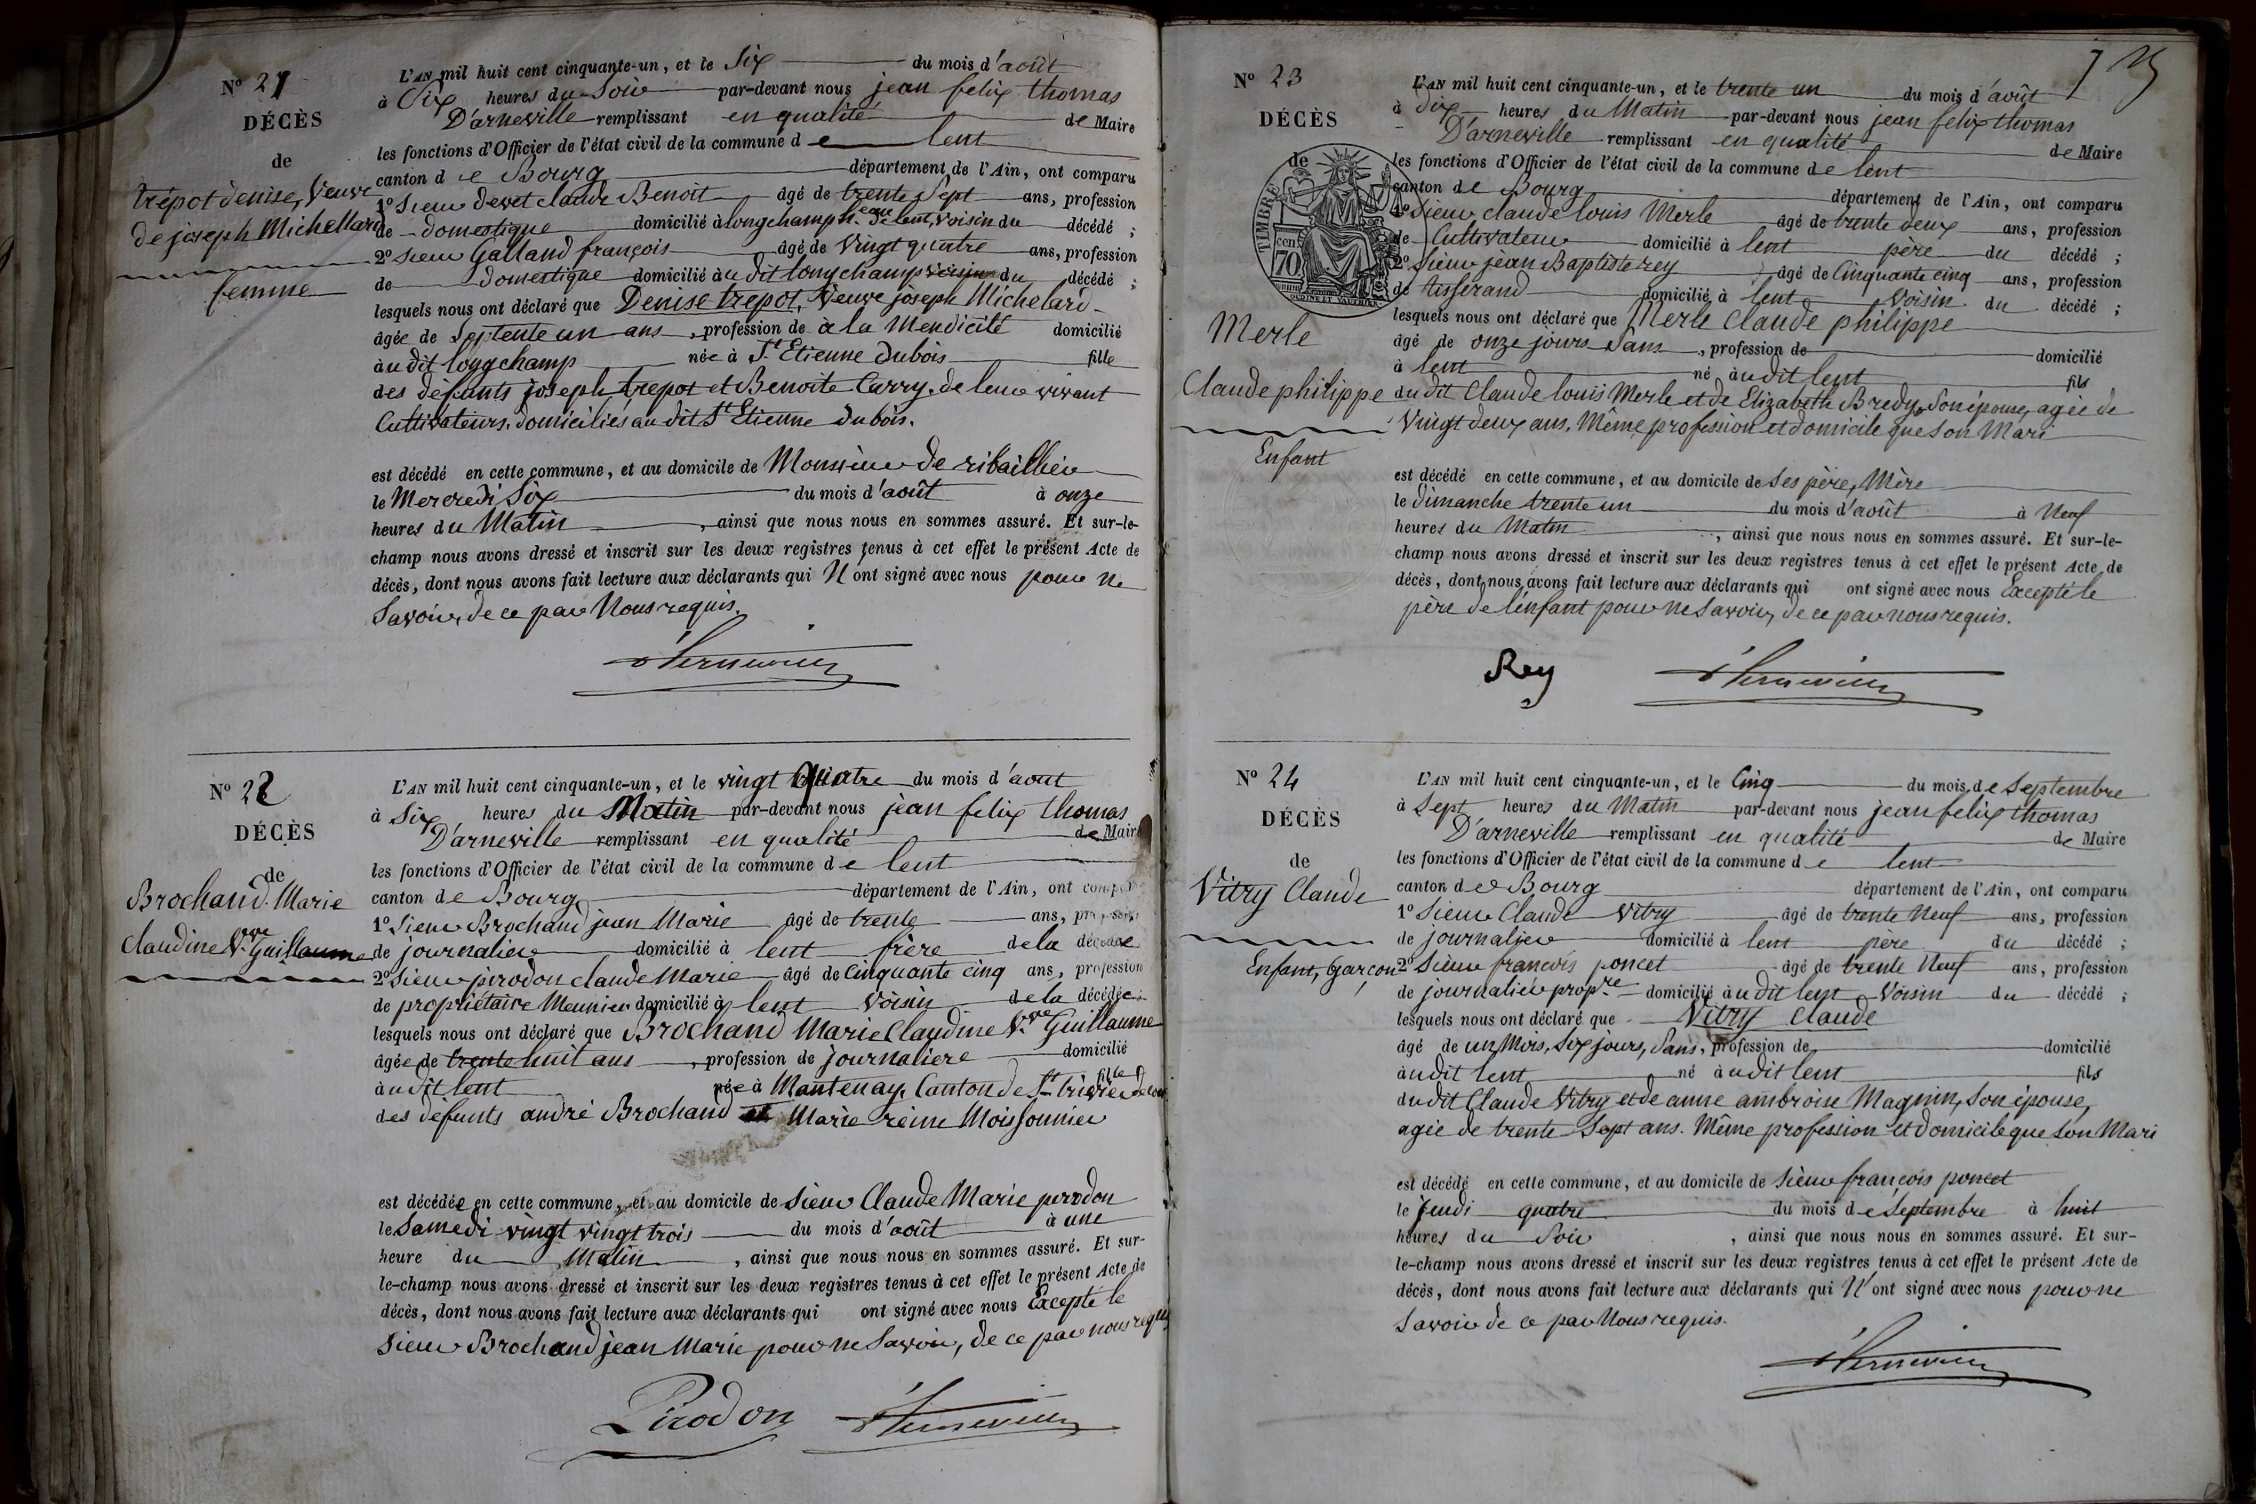 N° 21
DÉCÈS
de
trépot denise, Veuve
de joseph Michellard
femme
L'AN mil huit cent cinquante-un, et le Six du mois d'août
à Six heures du Soir par-devant nous jean felix thomas
D'arneville remplissant en qualité de Maire
les fonctions d'Officier de l'état civil de la commune de lent
canton de Bourg département de l'Ain, ont comparu
1° Sieur devet claude Benoit âgé de trente Sept ans, profession
de domestique domicilié à longchamp lent, voisin du décédé ;
2° Sieur Galland françois âgé de Vingt quatre ans, profession
de domestique domicilié au dit longchamp voisin du décédé ;
lesquels nous ont déclaré que Denise trepot, Veuve joseph Michelard
âgée de Septente un ans, profession de à la Mendicité domicilié
au dit longchamp née à St Etienne dubois fille
des défunts joseph trepot et Benoite Curry. de leur vivant
Cultivateurs, domiciliés au dit St Etienne dubois.
est décédé en cette commune, et au domicile de Monsieur de ribaillier
le Mercredi Six du mois d'août à onze
heures du Matin, ainsi que nous nous en sommes assuré. Et sur-le-
champ nous avons dressé et inscrit sur les deux registres tenus à cet effet le présent Acte de
décès, dont nous avons fait lecture aux déclarants qui N'ont signé avec nous pour ne
Savoir, de ce par Nous requis.
N° 22
DÉCÈS
de
Brochand. Marie
Claudine Vve Guillaume
L'AN mil huit cent cinquante-un, et le vingt Quatre du mois d'aout
à Six heures du Matin par-devant nous jean felix thomas
D'arneville remplissant en qualité de Maire
les fonctions d'Officier de l'état civil de la commune de lent
canton de Bourg département de l'Ain, ont comparu
1° Sieur Brochand jean Marie âgé de trente ans, profession
de journalier domicilié à lent frère de la décédée
2° Sieur pirodon claude Marie âgé de Cinquante cinq ans, profession
de propriétaire Meunier domicilié à lent Voisin de la décédée ;
lesquels nous ont déclaré que Brochand Marie Claudine Vve Guillaume
âgée de trente huit ans, profession de journaliere domicilié
au dit lent née à Mantenay, Canton de St trivier de Cour fille
des défunts andré Brochand et Marie reine Moissonnier
est décédée en cette commune, et au domicile de Sieur Claude Marie pirodon
le Samedi vingt vingt trois du mois d'août à une
heure du Matin, ainsi que nous nous en sommes assuré. Et sur-
le-champ nous avons dressé et inscrit sur les deux registres tenus à cet effet le présent Acte de
décès, dont nous avons fait lecture aux déclarants qui ont signé avec nous Excepté le
Sieur Brochand jean Marie pour ne Savoir, de ce par nous requis
Pirodon
N° 23
DÉCÈS
de
TIMBRE
70
Merle
Claude philippe
Enfant
L'AN mil huit cent cinquante-un, et le trente un du mois d'août
à dix heures du Matin par-devant nous jean felix thomas
D'arneville remplissant en qualité de Maire
les fonctions d'Officier de l'état civil de la commune de lent
canton de Bourg département de l'Ain, ont comparu
1° Sieur claude louis Merle âgé de trente deux ans, profession
de Cultivateur domicilié à lent père du décédé ;
2° Sieur jean Baptiste rey âgé de Cinquante cinq ans, profession
de tisserand domicilié à lent Voisin du décédé ;
lesquels nous ont déclaré que Merle claude philippe
âgé de onze jours Sans, profession de domicilié
à lent né au dit lent fils
du dit Claude louis Merle et de Elizabeth Bredy, Son épouse, agée de
Vingt deux ans, Même profession et domicile que Son Mari
est décédé en cette commune, et au domicile de Ses père, Mère
le dimanche trente un du mois d'août à Neuf
heures du Matin, ainsi que nous nous en sommes assuré. Et sur-le-
champ nous avons dressé et inscrit sur les deux registres tenus à cet effet le présent Acte de
décès, dont nous avons fait lecture aux déclarants qui ont signé avec nous Excepté le
père de l'enfant pour ne Savoir, de ce par nous requis.
Rey
N° 24
DÉCÈS
de
Vitry Claude
Enfant, Garçon
L'AN mil huit cent cinquante-un, et le Cinq du mois de Septembre
à Sept heures du Matin par-devant nous jean felix thomas
D'arneville remplissant en qualité de Maire
les fonctions d'Officier de l'état civil de la commune de lent
canton de Bourg département de l'Ain, ont comparu
1° Sieur Claude Vitry âgé de trente Neuf ans, profession
de journalier domicilié à lent père du décédé ;
2° Sieur francois poncet âgé de trente Neuf ans, profession
de journalier propre domicilié au dit lent Voisin du décédé ;
lesquels nous ont déclaré que Vitry Claude
âgé de un Mois, Six jours, Sans, profession de domicilié
au dit lent né au dit lent fils
du dit Claude Vitry et de anne ambroise Magnin, Son épouse,
agée de trente Sept ans. Même profession et domicile que Son Mari
est décédé en cette commune, et au domicile de Sieur françois poncet
le jeudi quatre du mois de Septembre à huit
heures du Soir, ainsi que nous nous en sommes assuré. Et sur-
le-champ nous avons dressé et inscrit sur les deux registres tenus à cet effet le présent Acte de
décès, dont nous avons fait lecture aux déclarants qui N'ont signé avec nous pour ne
Savoir de ce par Nous requis.